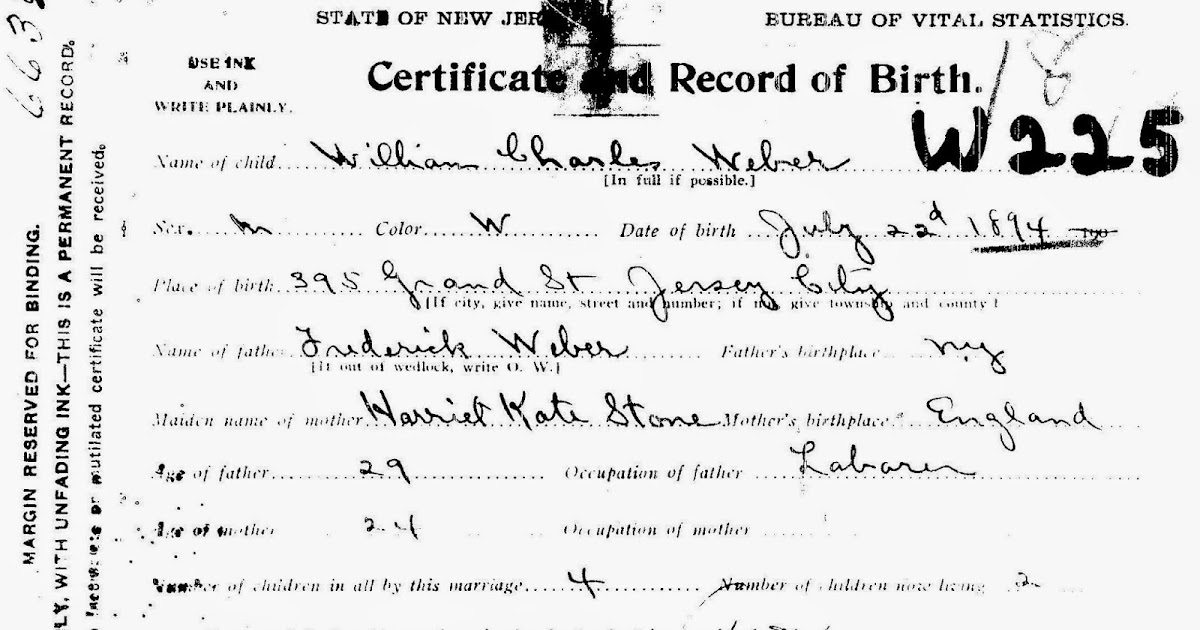 STATE OF NEW JER
BUREAU OF VITAL STATISTICS.
USE INK
AND
WRITE PLAINLY.
Certificate and Record of Birth.
W225
Name of child William Charles Weber
[In full if possible.]
Sex. m Color W Date of birth July 22d 1894
Place of birth 395 Grand St Jersey City
[If city, give name, street and number; if not, give township and county]
Name of father Frederick Weber Father's birthplace NY
[If out of wedlock, write O. W.]
Maiden name of mother Harriet Kate Stone Mother's birthplace England
Age of father 29 Occupation of father Laborer
Age of mother 24 Occupation of mother
Number of children in all by this marriage 4 Number of children now living 2
MARGIN RESERVED FOR BINDING.
LY, WITH UNFADING INK—THIS IS A PERMANENT RECORD.
Incomplete or mutilated certificate will be received.